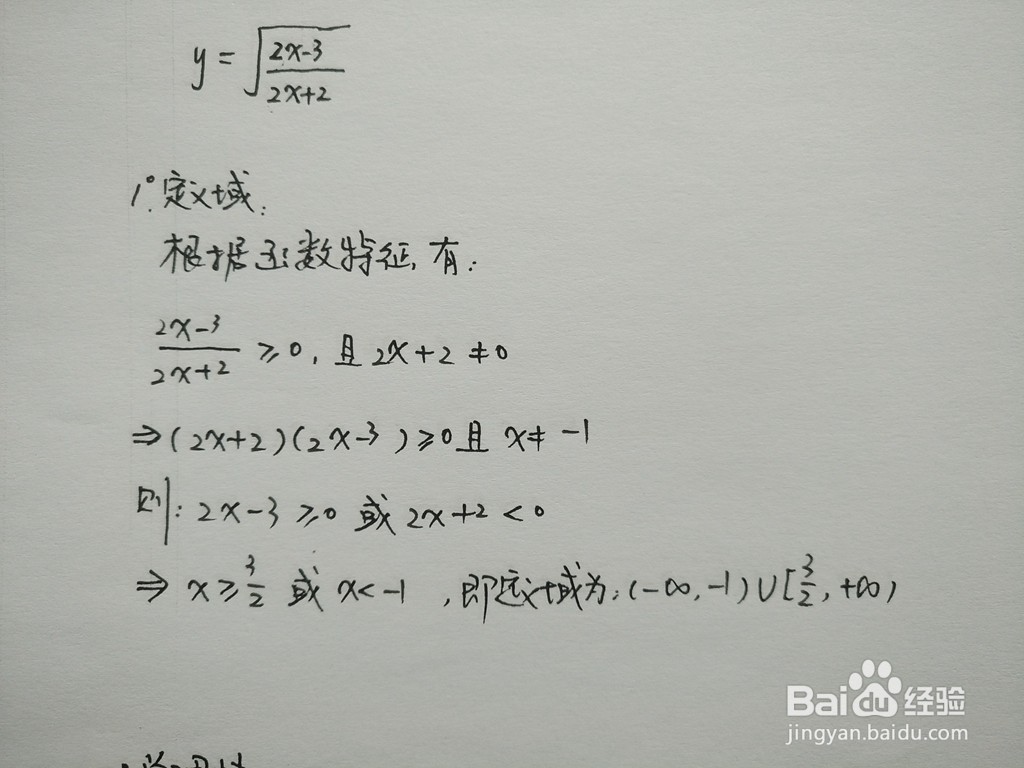 y = √((2x-3)/(2x+2))
1°.定义域:
根据函数特征,有:
(2x-3)/(2x+2) ≥0, 且 2x+2≠0
⇒(2x+2)(2x-3)≥0且 x≠-1
则: 2x-3≥0 或 2x+2<0
⇒ x≥3/2 或 x<-1 ,即定义域为:(-∞,-1)∪[3/2,+∞)
Baidu经验
jingyan.baidu.com